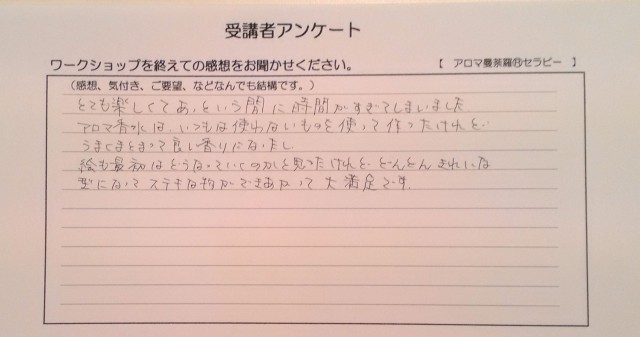 受講者アンケート
ワークショップを終えての感想をお聞かせください。 【 アロマ曼荼羅Ⓡセラピー 】
(感想、気付き、ご要望、などなんでも結構です。)
とても楽しくてあっという間に時間がすぎてしまいました
アロマ香水は、いつもは使わないものを使って作ったけれど
うまくまとまって良い香りになったし
絵も最初はどうなっていくのかと思ったけれど、どんどんきれいな
型になってステキな物ができあがって大満足です。